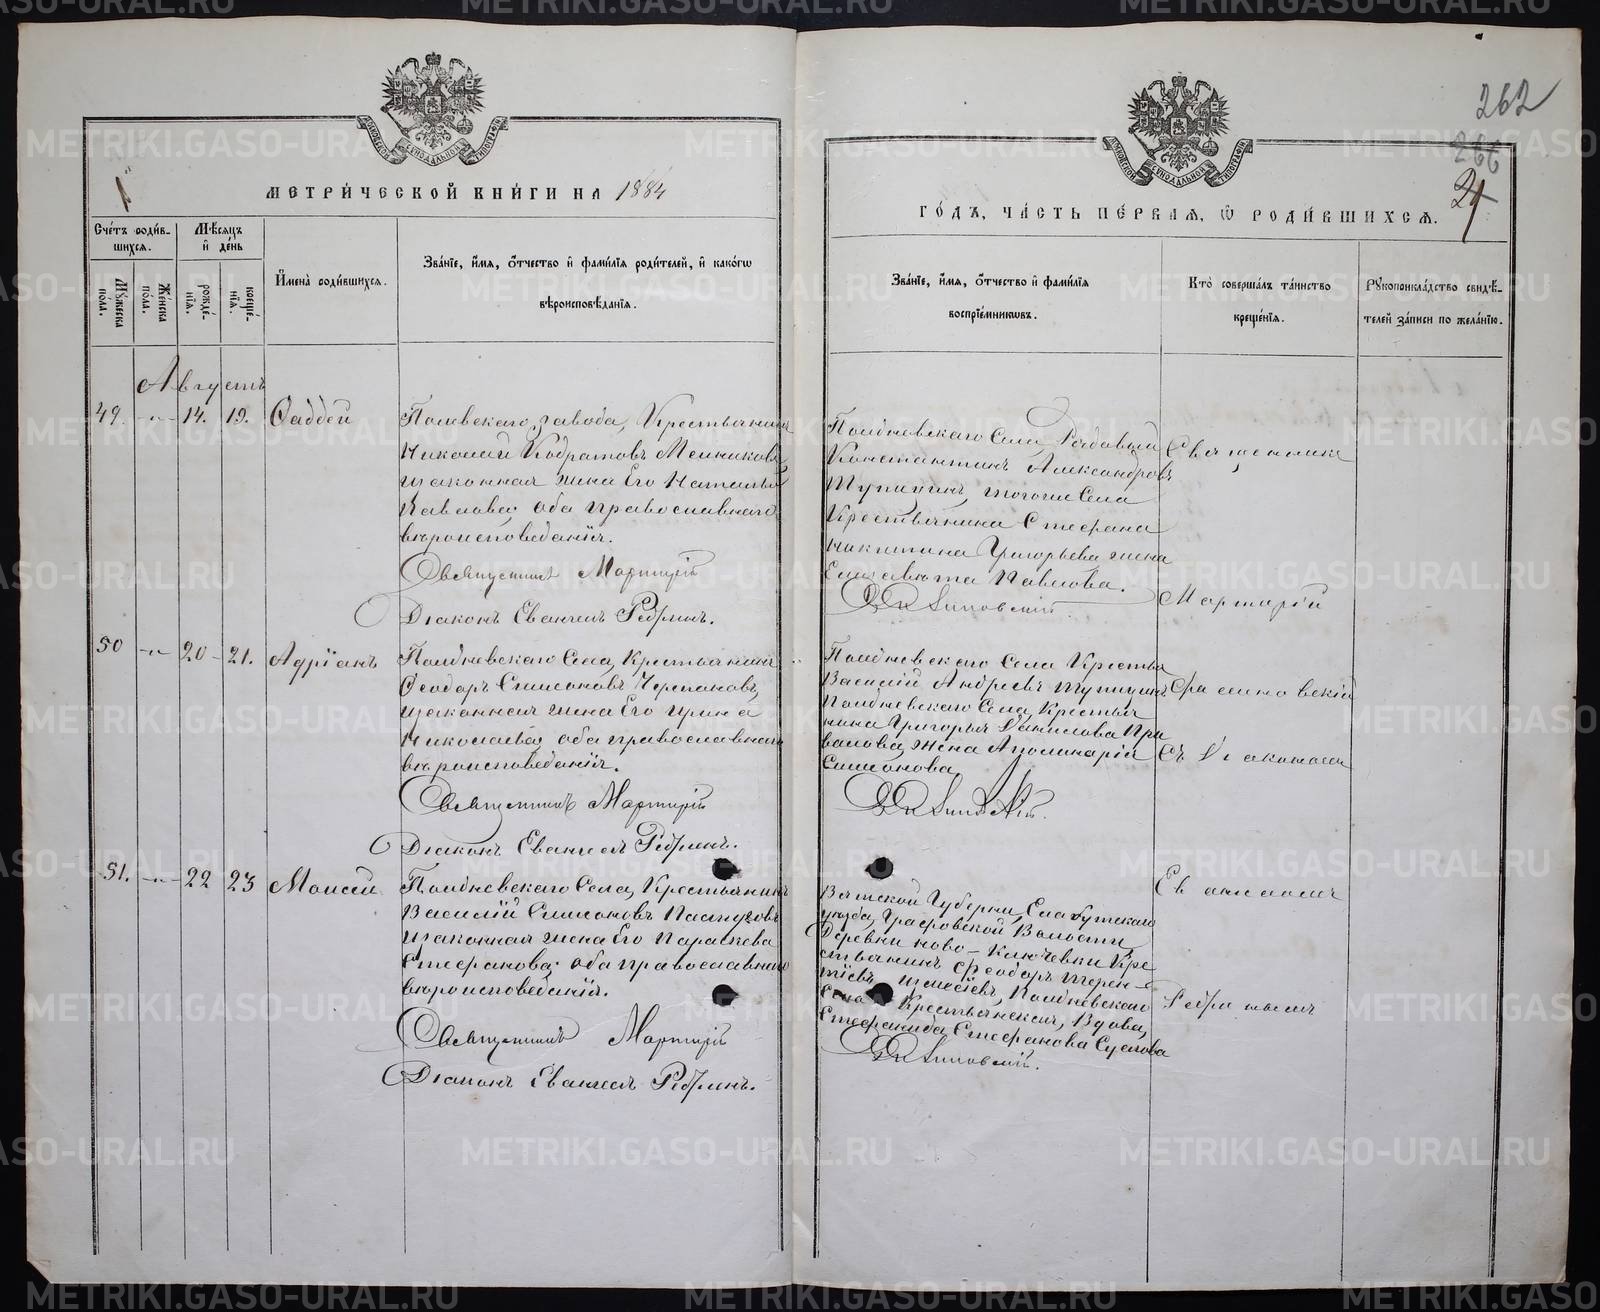 262
266
21
МЕТРИЧЕСКОЙ КНИГИ НА 1884
ГОДЪ, ЧАСТЬ ПЕРВАЯ, Ѿ РОДИВШИХСЯ.
Счетъ родив-
шихся.
Мужеска пола.
Женска пола.
Мѣсяцъ
и день
рожденія.
крещенія.
Имена родившихся.
Званіе, имя, отчество и фамилія родителей, и какогѡ
вѣроисповѣданія.
Званіе, имя, отчество и фамилія
воспріемникѡвъ.
Кто совершалъ таинство
крещенія.
Рукоприкладство свидѣ-
телей записи по желанію.
Августъ
49. -"- 14. 19. Ѳаддей
Полевскаго завода, Крестьянинъ
Николай Кодратовъ Мельниковъ
и законная жена Его Наталья
Павлова, оба православнаго
вѣроисповѣданія.
Священникъ Мартирій
Діаконъ Евангелъ Ребринъ.
Полдневскаго Села, Рядовый
Константинъ Александровъ
Тупицинъ, тогоже Села
Крестьянина Стефана
Никитина Григорьева жена
Елизавета Павлова.
Священникъ
Мартирій
50 -"- 20 - 21. Адріанъ
Полдневскаго Села, Крестьянинъ
Ѳеодоръ Симеоновъ Черепановъ,
и законная жена Его Ирина
Николаева, оба православнаго
вѣроисповѣданія.
Священникъ Мартирій
Діаконъ Евангелъ Ребринъ.
Полдневскаго Села Крестья
Василій Андреевъ Тупицинъ
Полдневскаго Села, Крестья
нина Григорья Данилова При
валова, жена Аполинарія
Симеонова
Сѣ Діакономъ
51. -"- 22 23 Моисей
Полдневскаго Села, Крестьянинъ
Василій Симеоновъ
и законная жена Его Параскева
Стефанова, оба православнаго
вѣроисповѣданія.
Священникъ Мартирій
Діаконъ Евангелъ Ребринъ.
Вятской Губерніи, Елабутскаго
уезда, Граховской Волости
Деревни ново-Ключевки Кре
стьянинъ Ѳеодоръ Терен-
тіевъ Полдневскаго
Села Крестьянская, Вдова,
Стефанида Стефанова Суслова
Евангеломъ
Ребринымъ
METRIKI.GASO-URAL.RU